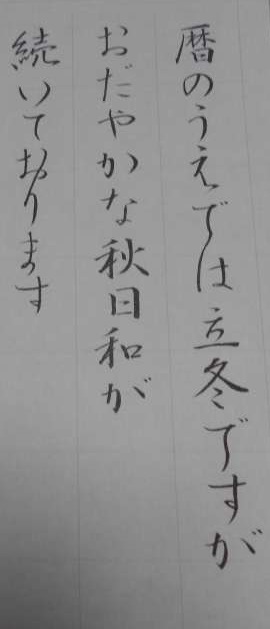 暦のうえでは立冬ですが
おだやかな秋日和が
続いております